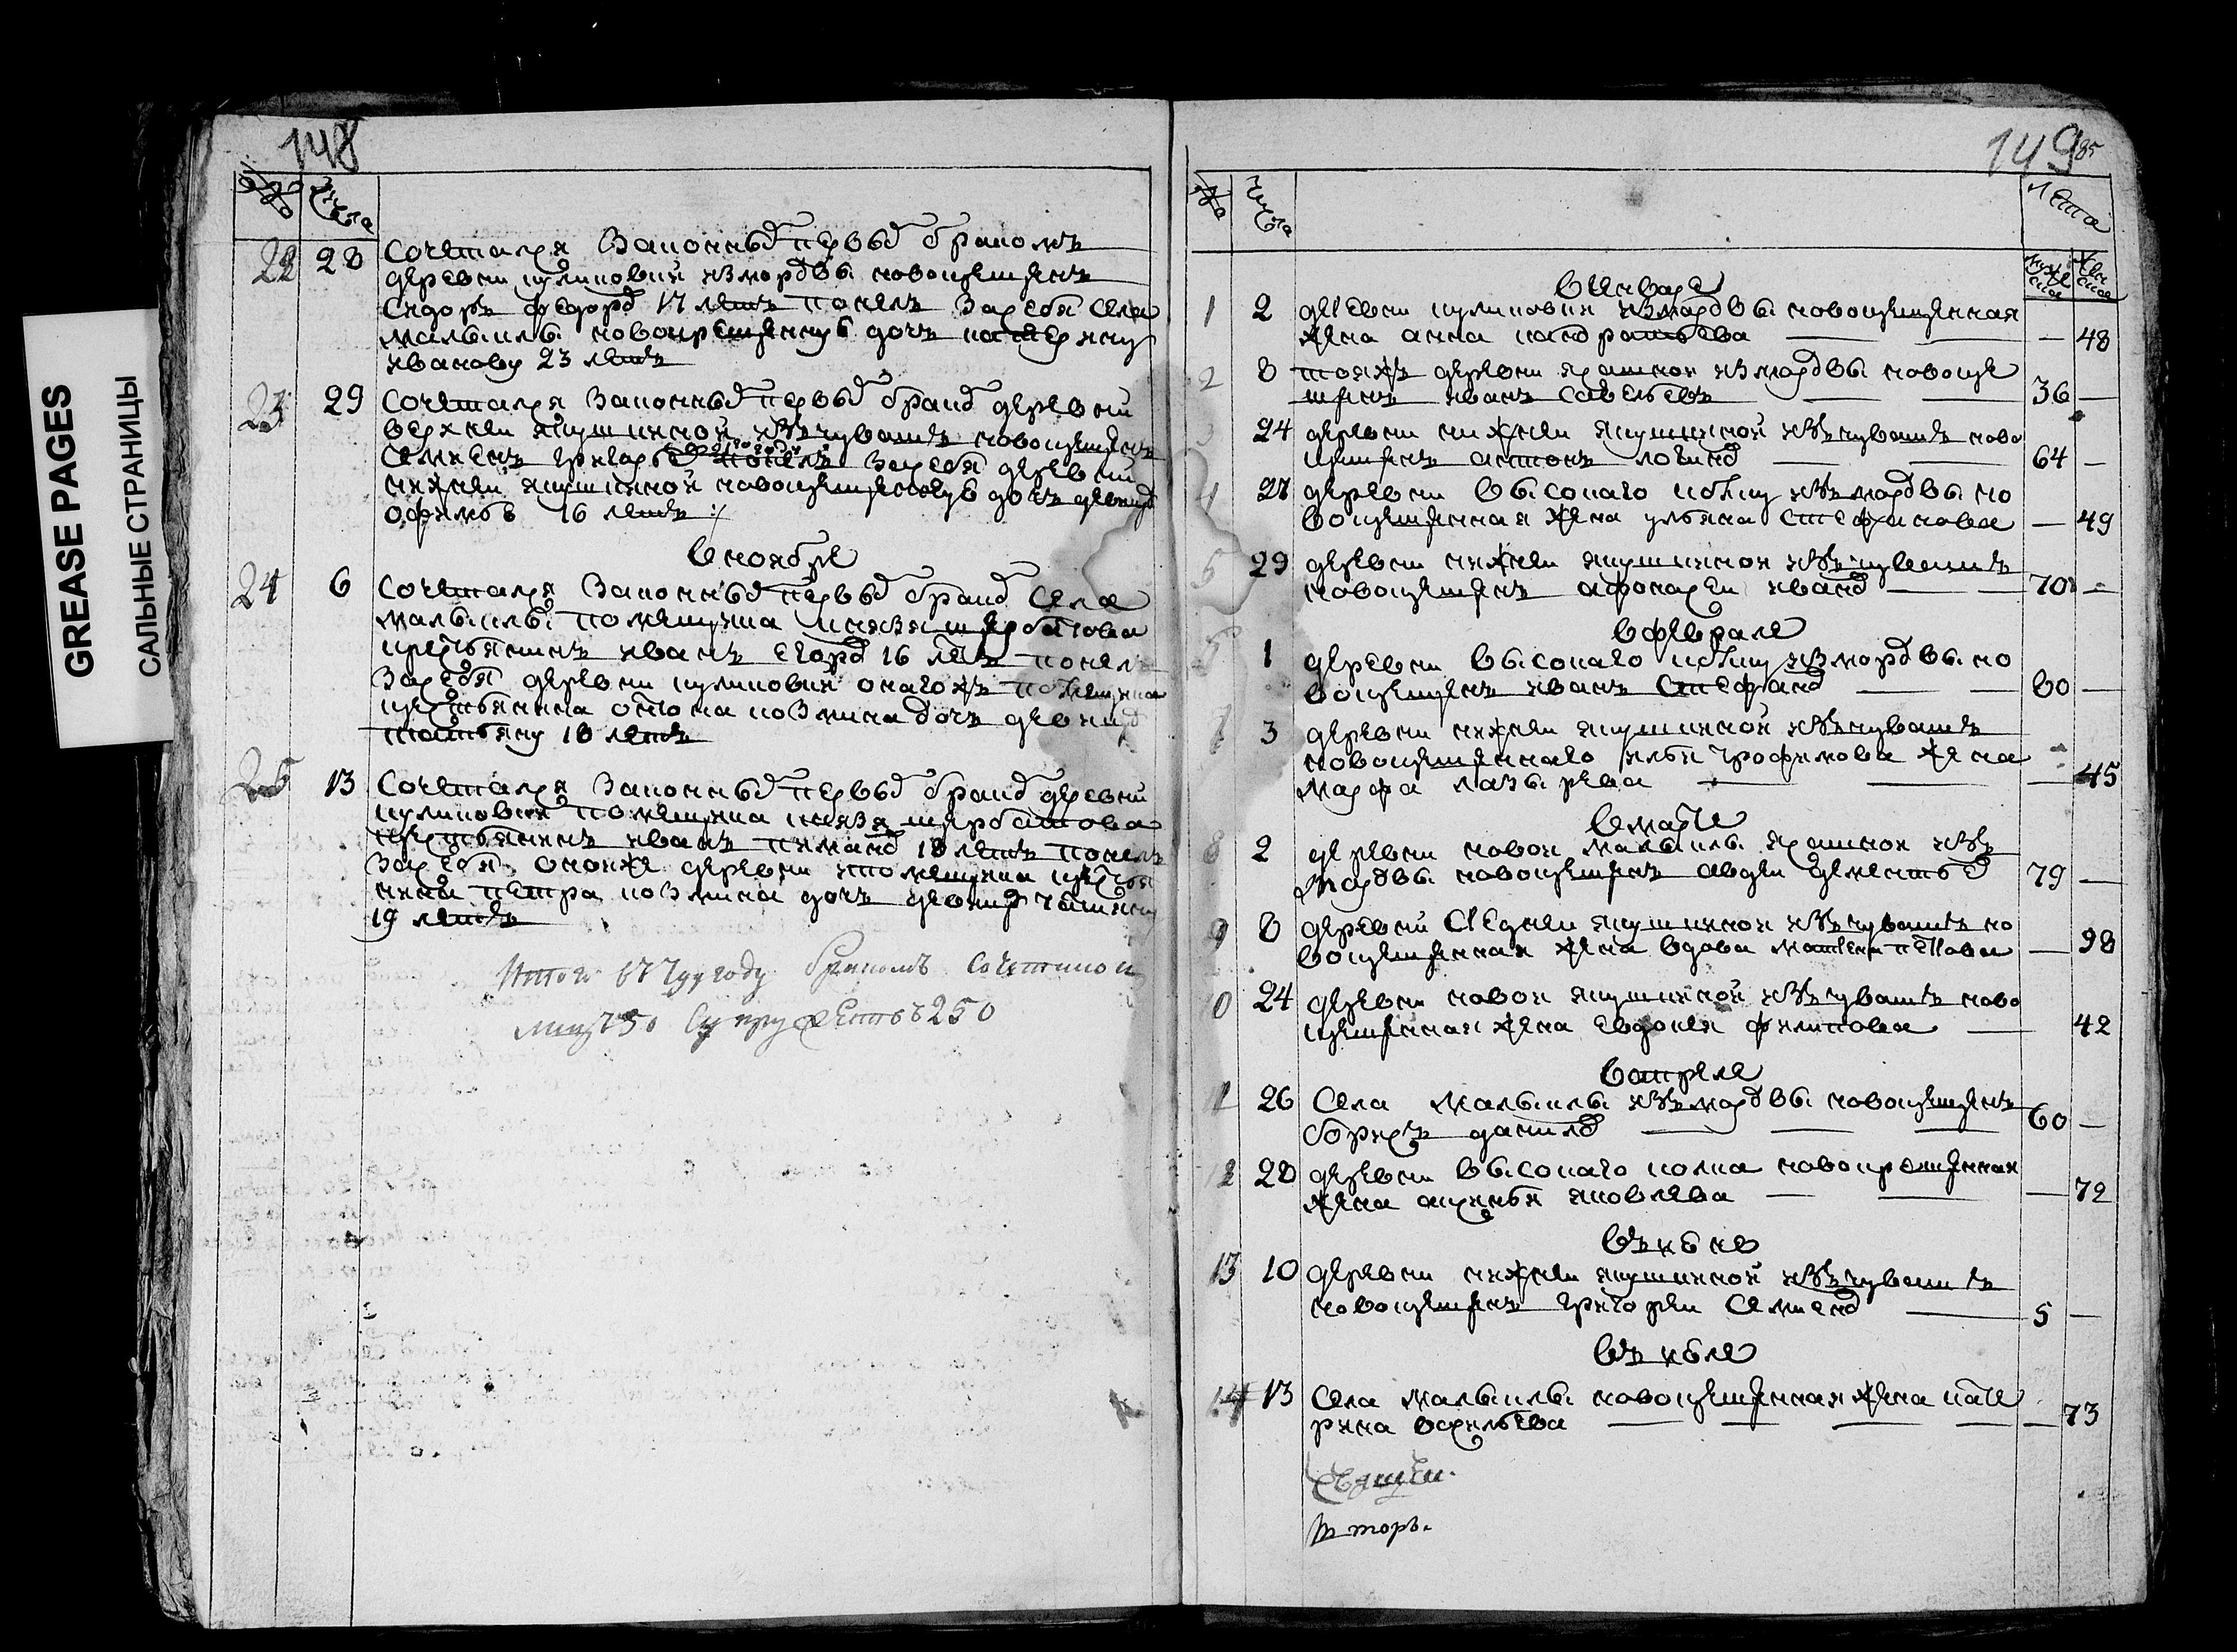 GREASE PAGES
САЛЬНЫЕ СТРАНИЦЫ
148
числа
22 28 Сочетался законныъ первыъ бракомъ
деревни куликовки изъ мордвы новокрещенъ
Сидоръ федоръ 17 летъ понелъ зa себя села
малыклы новокрещенную дочь катерину
иванову 23 летъ
23 29 Сочетался законныъ первыъ бракъ деревни
верхнеи якушкиной изъ чувашъ новокрещенъ
Семенъ григорьъ понелъ за себя деревни
нижнеи якушкиной новокрещенную дочь девицъ
офимью 16 летъ
в ноябре
24 6 Сочетался законныъ первыъ бракъ села
малыклы помещика князя щербатова
крестьянинъ иванъ егоръ 16 летъ понелъ
за себя деревни куликовки онагожъ помещика
крестьянина козмина дочь девицъ
татьяну 18 летъ
25 13 Сочетался законныъ первыъ бракъ деревни
куликовки помещика князя щербатова
крестьянинъ иванъ 18 летъ понелъ
за себя оноиже деревни помещика крестья
нина петра козмина дочь девицъ
19 летъ
Итого году бракомъ Сочетано
лицъ 50 Супружествъ 25
149
85
числа
лета
мужеска
женска
в Енваре
1 2 деревни куликовки изъ мордвы новокрещенная
жена анна кандратьева — 48
2 8 тояжъ деревни изъ мордвы новокре
щенъ иванъ савельевъ 36 —
3 24 деревни нижнеи якушкинои изъ чувашъ ново
крещенъ антонъ логинъ 64 —
4 27 деревни высокаго колку изъ мордвы но
вокрещенная жена ульяна стефанова — 49
5 29 деревни нижнеи якушкинои изъ чувашъ
новокрещенъ афонасеи иванъ 70 —
в феврале
1 деревни высокаго колку изъ мордвы но
вокрещенъ иванъ стефанъ 60 —
7 3 деревни нижнеи якушкиной изъ чувашъ
новокрещеннаго ильи трофимова жена
марфа лазырева — 45
в марте
8 2 деревни новои малыклы изъ
мордвы новокрещенъ авдеи 79 —
9 8 деревни среднеи якушкинои изъ чувашъ но
вокрещенная жена вдова петрова — 98
10 24 деревни новои якушкиной изъ чувашъ ново
крещенная жена евдокея филипова — 42
в апреле
11 26 Села малыклы изъ мордвы новокрещенъ
борисъ данилъ 60 —
12 28 деревни высокаго колка новокрещенная
жена яковлева — 72
въ июне
13 10 деревни нижнеи якушкиной изъ чувашъ
новокрещенъ григореи семенъ 5 —
въ июле
14 13 Села малыклы новокрещенная жена кате
рина васильева — 73